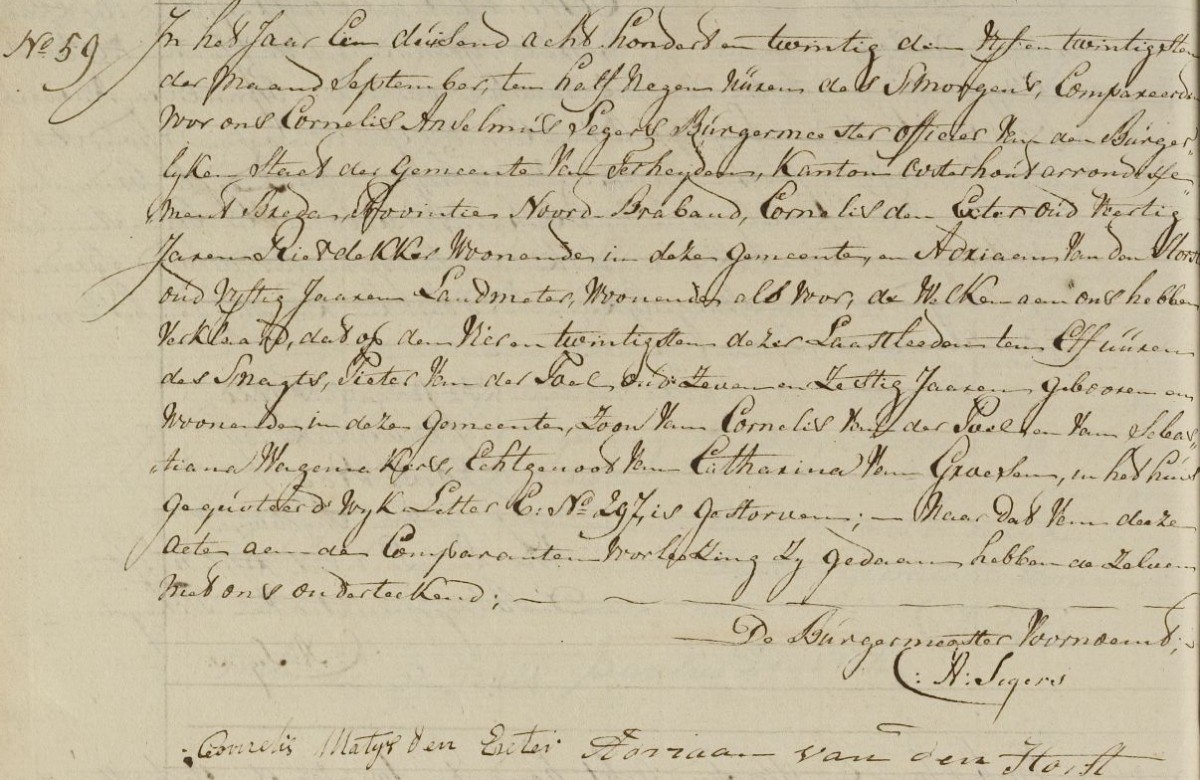 No 59
In het Jaar Een duisend acht hondert en twintig den Vyfentwintigsten
der Maand September, ten half Negen Uüren des Smorgens, Compareerden
voor ons Cornelis Anselmüs Segers Bürgermeester officier Van den Bürger„
lyken Staat der Gemeente Van Terheyden, Kanton Oosterhoüt arrondisse„
ment Breda, Provintie Noord-Braband, Cornelis den Exter oüd Veertig
Jaren Rietdekker Woonende in deze Gemeente, en Adriaen Van den Horst
oüd Vyftig Jaaren Landmeter, Woonende als voor, de Welken aen ons hebben
Verklaard, dat op den Vierentwintigsten dezer Laastleeden ten Elf uüren
des Snagts, Pieter Van der Poel oüd Zevenen Zestig Jaaren gebooren en
Woonende in deze Gemeente, Zoon Van Cornelis Van der Poel en Van Sebas„
tiana Wagemakers, Echtgenoot Van Catharina Van Groesen, in het hüis
gequoteerd Wyk Letter C: No 297, is gestorven; — Naar dat Van deeze
acte aen de Comparanten Voorleezing Zy gedaen hebben de Zelven
Met ons onderteekend; —
De Bürgermeester Voornoemt;
C: A: Segers
Cornelis Matys den Exter Adriaan van den Horst